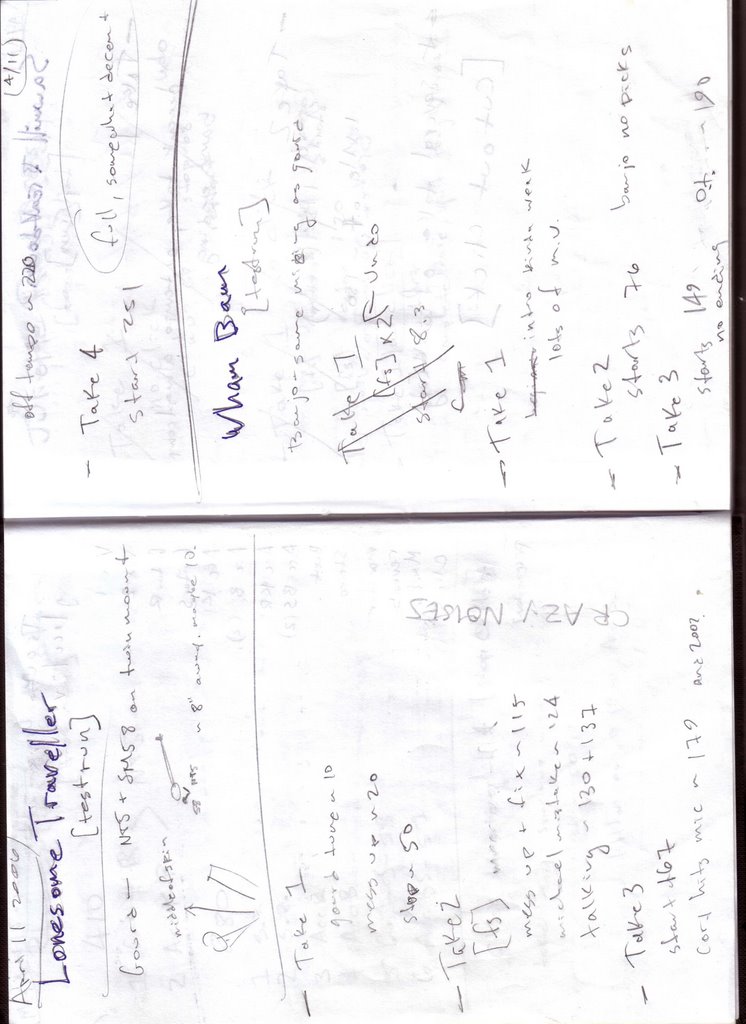 April 11 2006
Lonesome Traveller
[testrun]
Gourd - NT5 + SM58 on twin mount
middle of skin
58/NT5 ~ 8" away. maybe 10.
- Take 1
gourd tune ~ 10
mess up ~ 20
stop ~ 50
- Take 2
[fs]
mess up + fix ~ 115
michael mistake ~ 124
talking ~ 130 + 137
CRAZY NOISES
- Take 3
start 167
Cord hits mic ~ 179 and 200?
4/11
off tempo ~ 220
- Take 4
start 251
full, somewhat decent
Wham Bam
[testrun]
Banjo - same micing as gourd
Take 1
[fs] x 2 Undo
start 8.3
- Take 1
intro kinda weak
lots of m.u.
- Take 2
starts 76 banjo no picks
- Take 3
starts 149 ~ 190
no ending